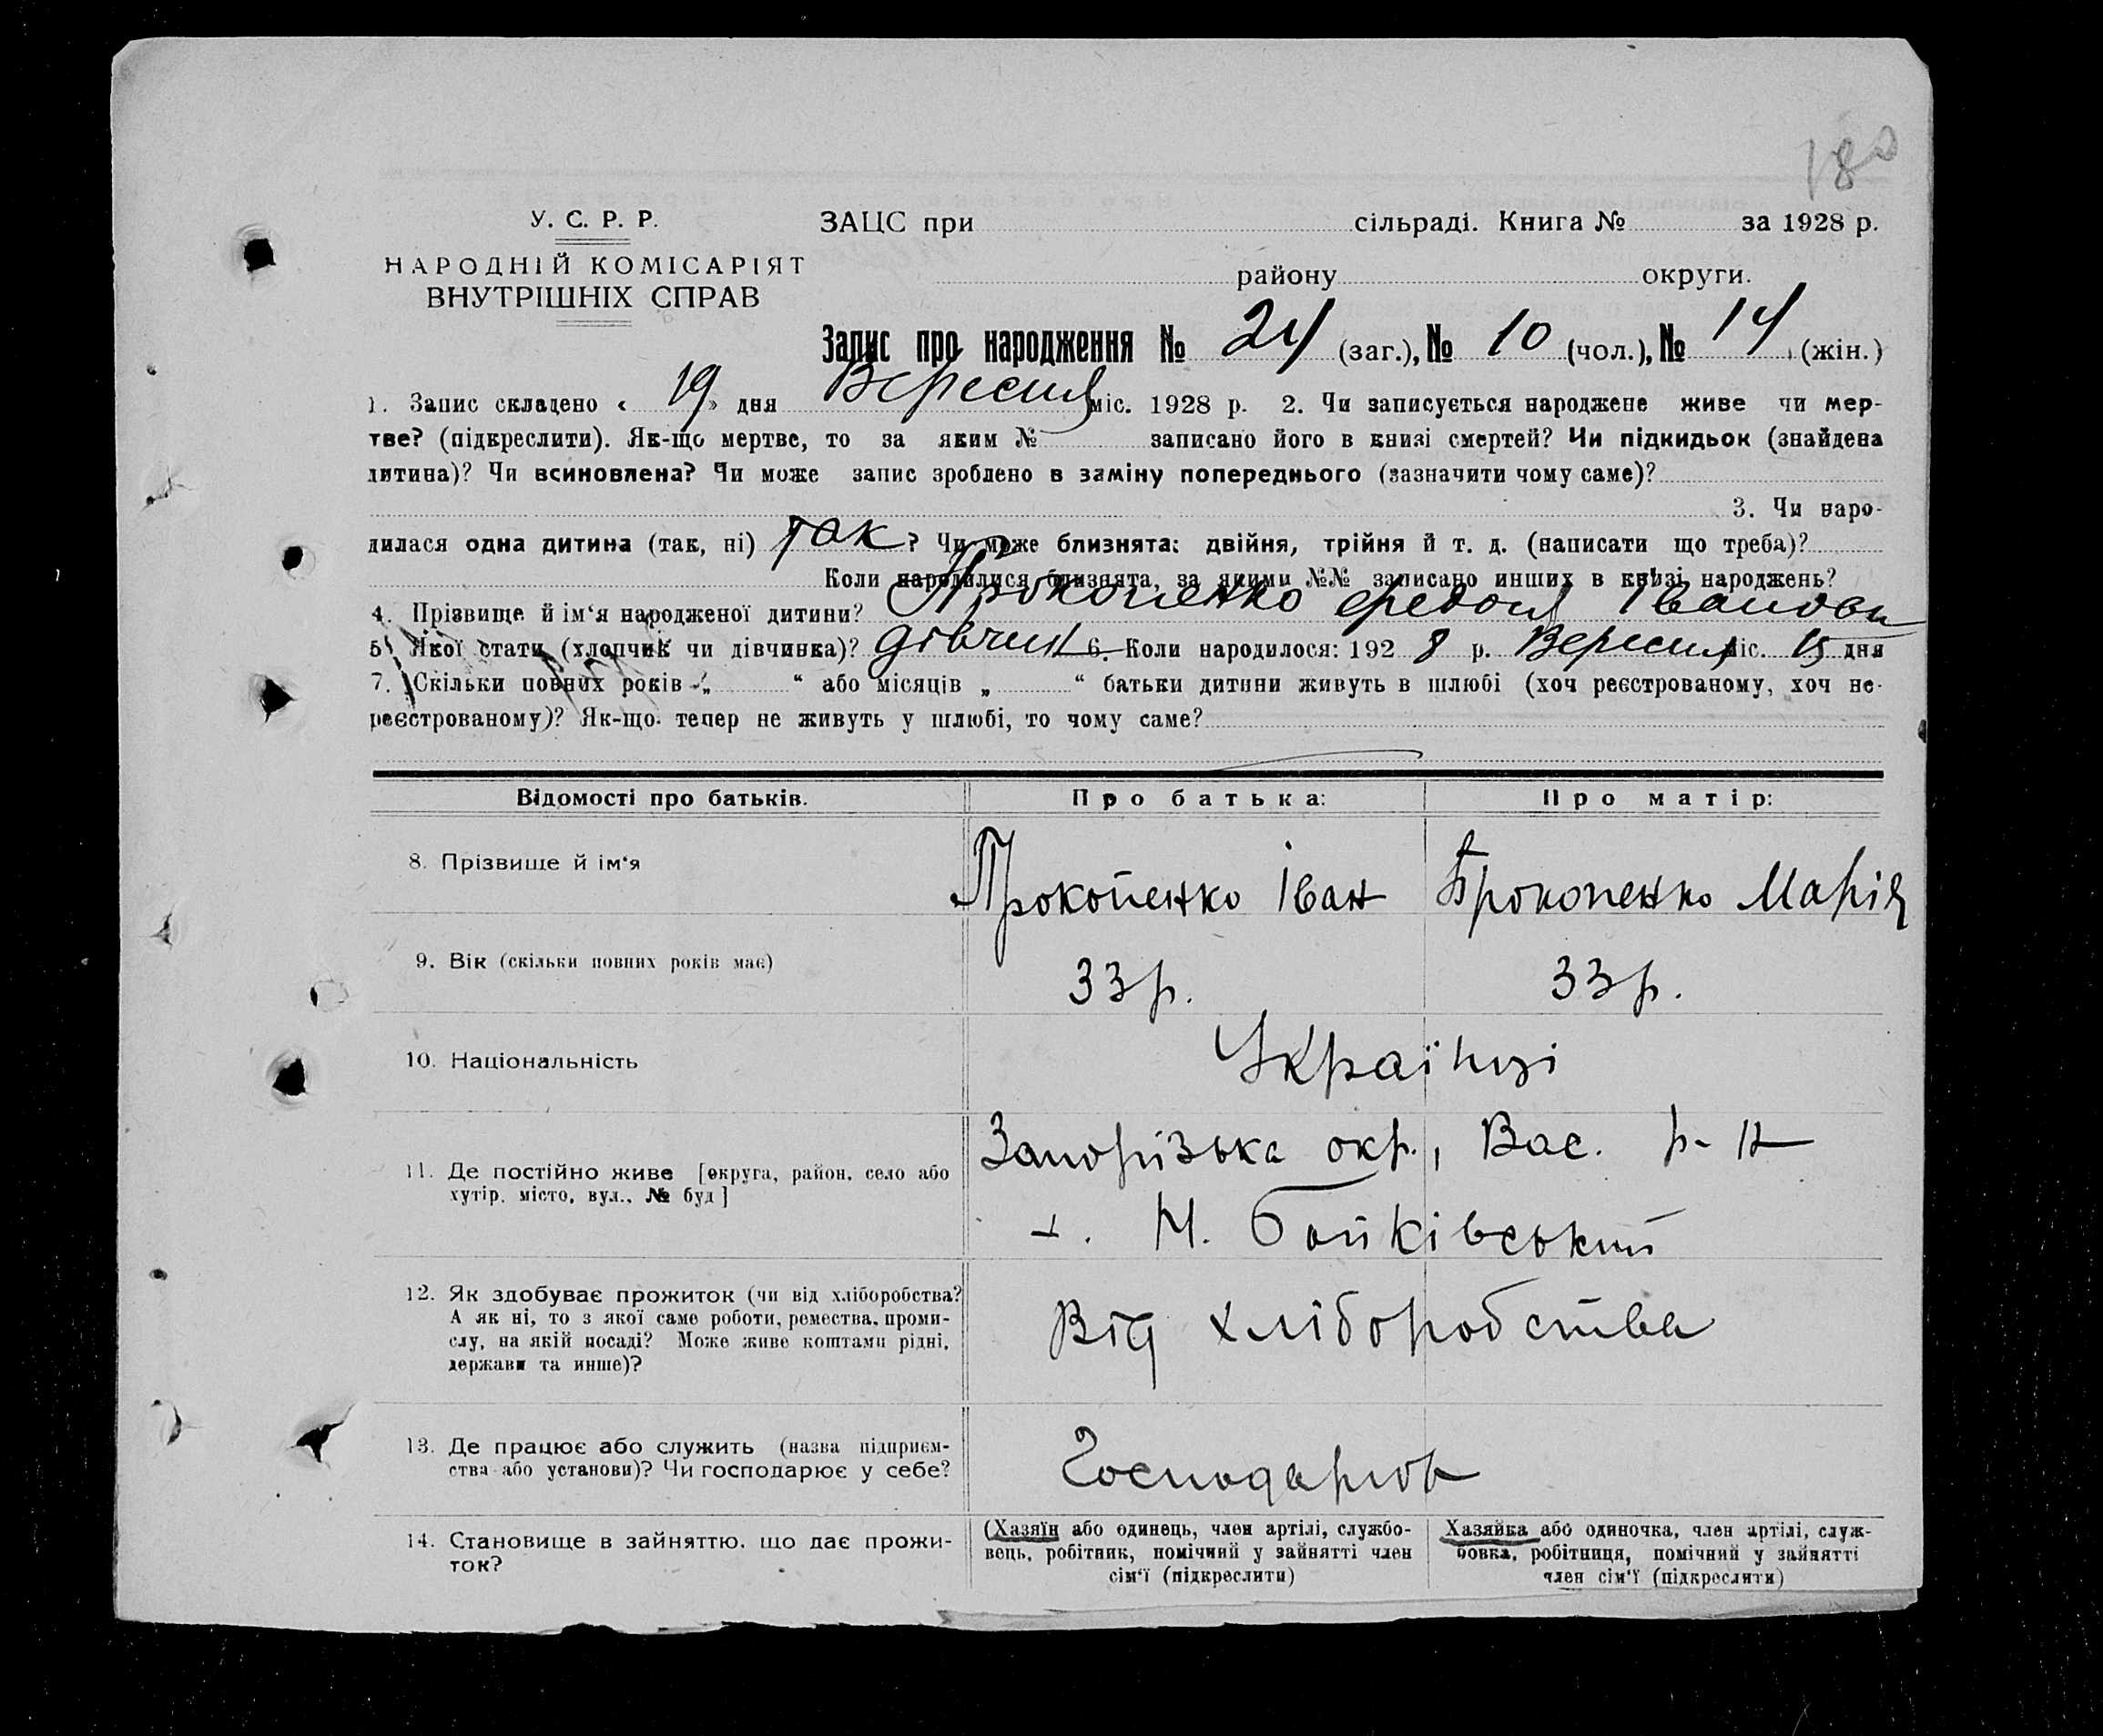 180
У. С. Р. Р.
НАРОДНІЙ КОМІСАРІЯТ
ВНУТРІШНІХ СПРАВ
ЗАЦС при сільраді. Книга № за 1928 р.
району округи.
Запис про народження № 24 (заг.), № 10 (чол.), № 14 (жін.)
1. Запис складено « 19 » дня Вересня міс. 1928 р. 2. Чи записується народжене живе чи мер-
тве? (підкреслити). Як-що мертве, то за яким № записано його в книзі смертей? Чи підкидьок (знайдена
дитина)? Чи всиновлена? Чи може запис зроблено в заміну попереднього (зазначити чому саме)?
3. Чи наро-
дилася одна дитина (так, ні) так ? Чи може близнята: двійня, трійня й т. д. (написати що треба)?
Коли народилися близнята, за якими №№ записано инших в книзі народжень?
4. Прізвище й ім‘я народженої дитини? Прокопенко Іванови
5. Якої стати (хлопчик чи дівчинка)? дівчин 6. Коли народилося: 192 8 р. Вересня міс. 15 дня
7. Скільки повних років „ “ або місяців „ “ батьки дитини живуть в шлюбі (хоч реєстрованому, хоч не-
реєстрованому)? Як-що тепер не живуть у шлюбі, то чому саме?
Відомості про батьків. Про батька: Про матір:
8. Прізвище й ім‘я Прокопенко Іван Прокопенко Марія
9. Вік (скільки повних років має) 33 р. 33 р.
10. Національність Українці
11. Де постійно живе [округа, район, село або
хутір, місто, вул., № буд]
Запорізька окр., Вас. р-н
х. Н. Бойківський
12. Як здобуває прожиток (чи від хліборобства?
А як ні, то з якої саме роботи, ремества, проми-
слу, на якій посаді? Може живе коштами рідні,
держави та инше)?
Від хліборобства
13. Де працює або служить (назва підприєм-
ства або установи)? Чи господарює у себе?
Господарюв
14. Становище в зайняттю, що дає прожи-
ток?
(Хазяїн або одинець, член артілі, службо-
вець, робітник, помічний у зайнятті член
сім‘ї (підкреслити)
Хазяйка або одиночка, член артілі, служ-
бовка, робітниця, помічний у зайнятті
член сім‘ї (підкреслити)